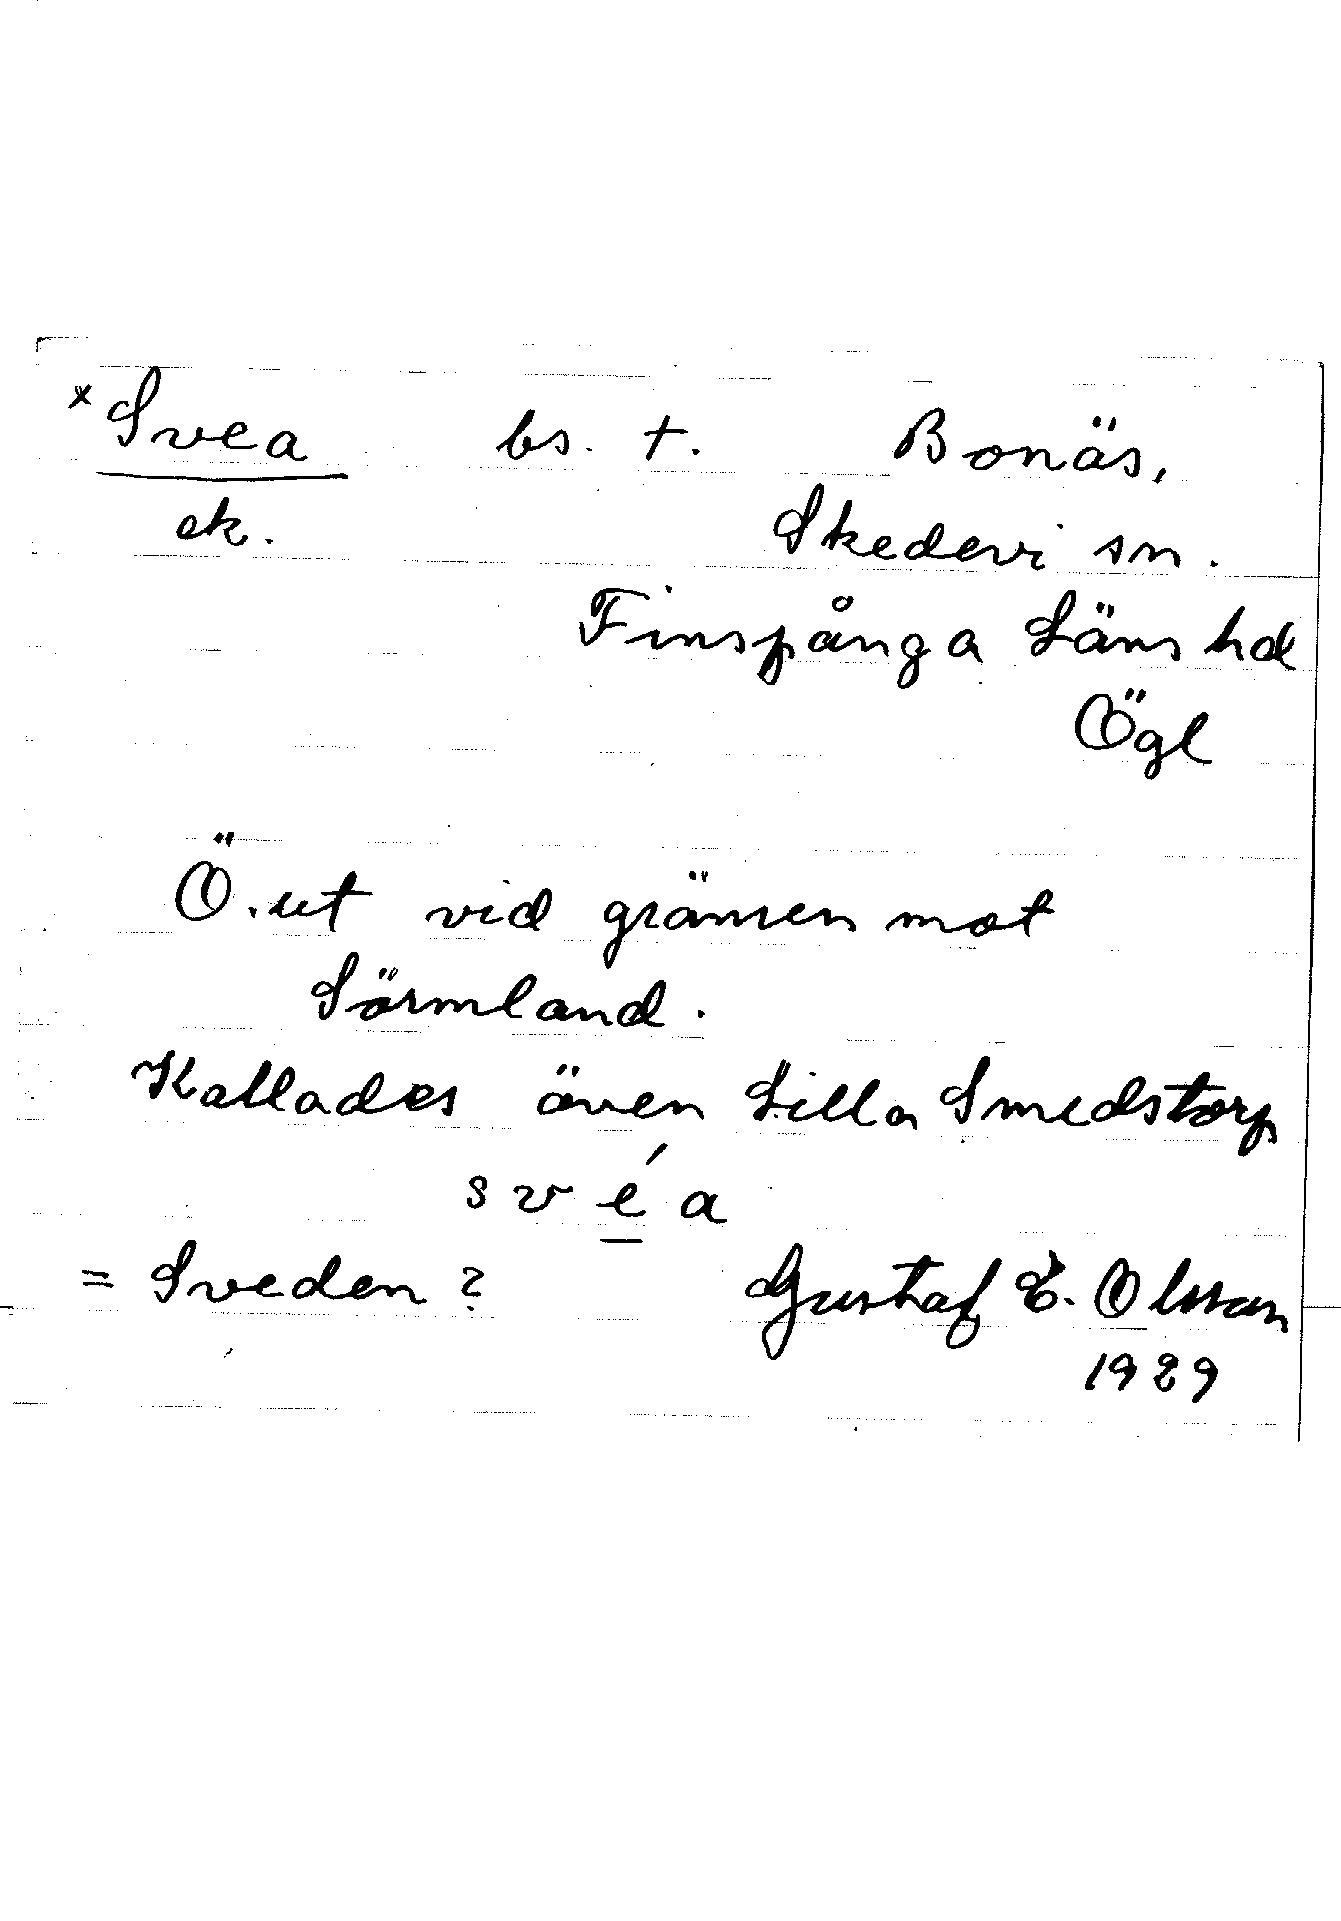 x Svea bs. t. Bonäs,
ek. Skedevi sn.
Finspånga Läns hd
Ögl
Ö. ut vid gränsen mot
Sörmland.
Kallades även Lilla Smedstorp
svéa
= Sveden? Gustaf E. Olsson
1929